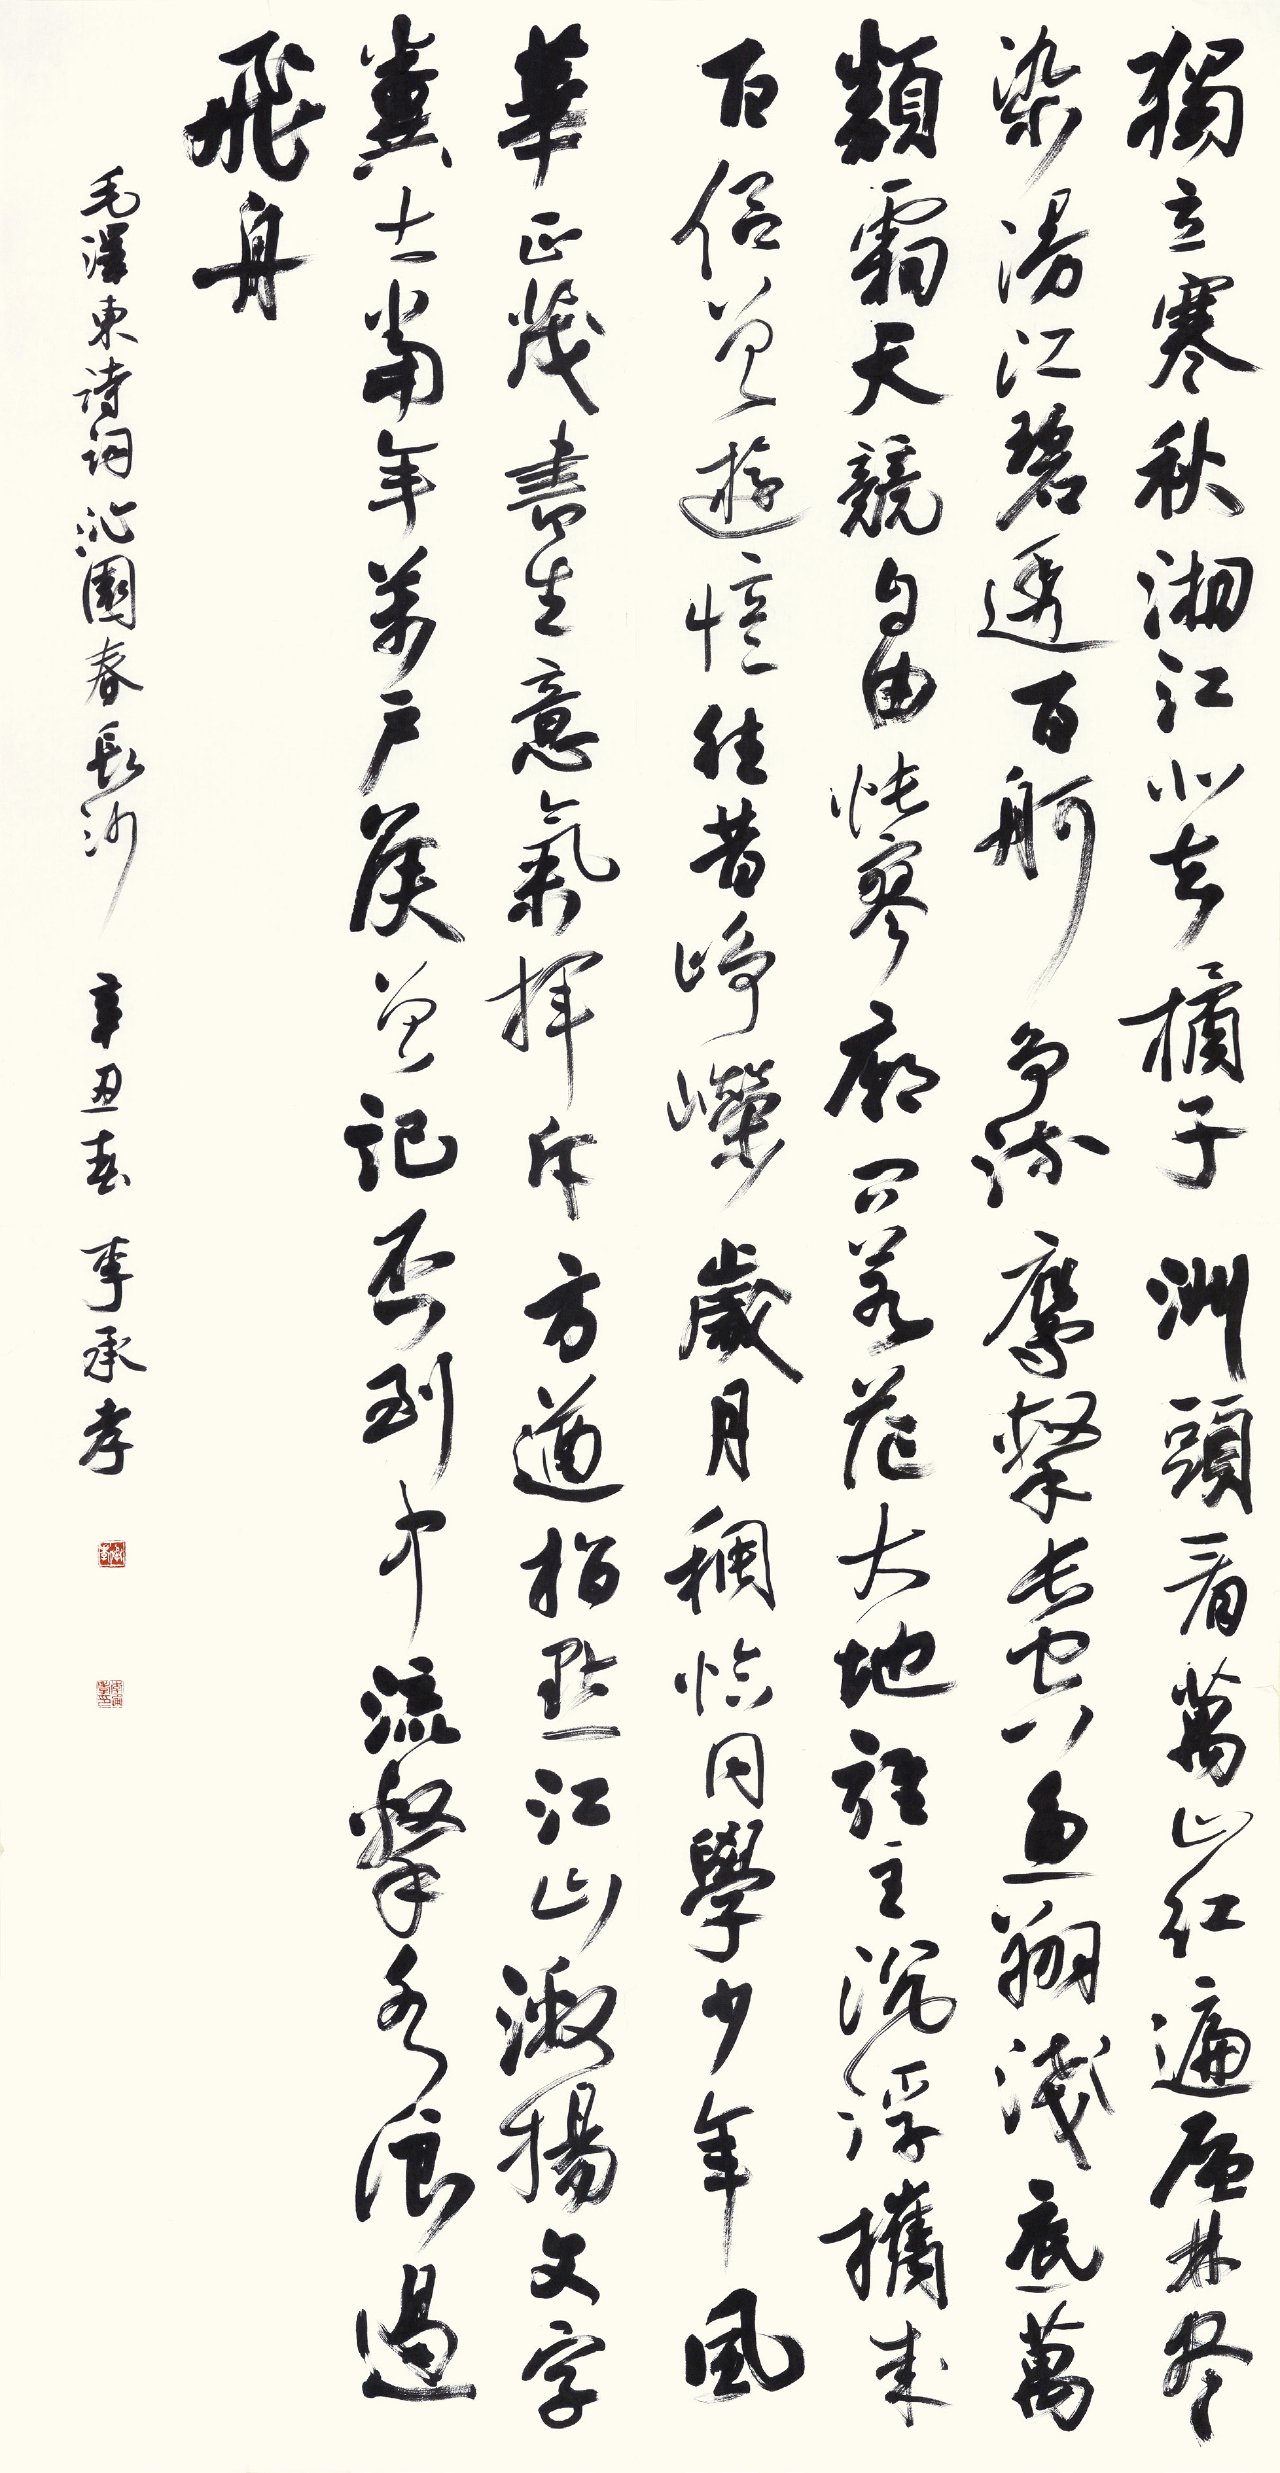 獨立寒秋湘江北去橘子洲頭看萬山紅遍層林盡
染漫江碧透百舸争流鷹擊長空魚翔淺底萬
類霜天競自由悵寥廓問蒼茫大地誰主沉浮攜來
百侣曾遊憶往昔崢嶸歲月稠恰同學少年風
華正茂書生意氣揮斥方遒指點江山激揚文字
糞土當年萬户侯曾記否到中流擊水浪遏
飛舟
毛澤東詩詞沁園春長沙 辛丑春 李承孝